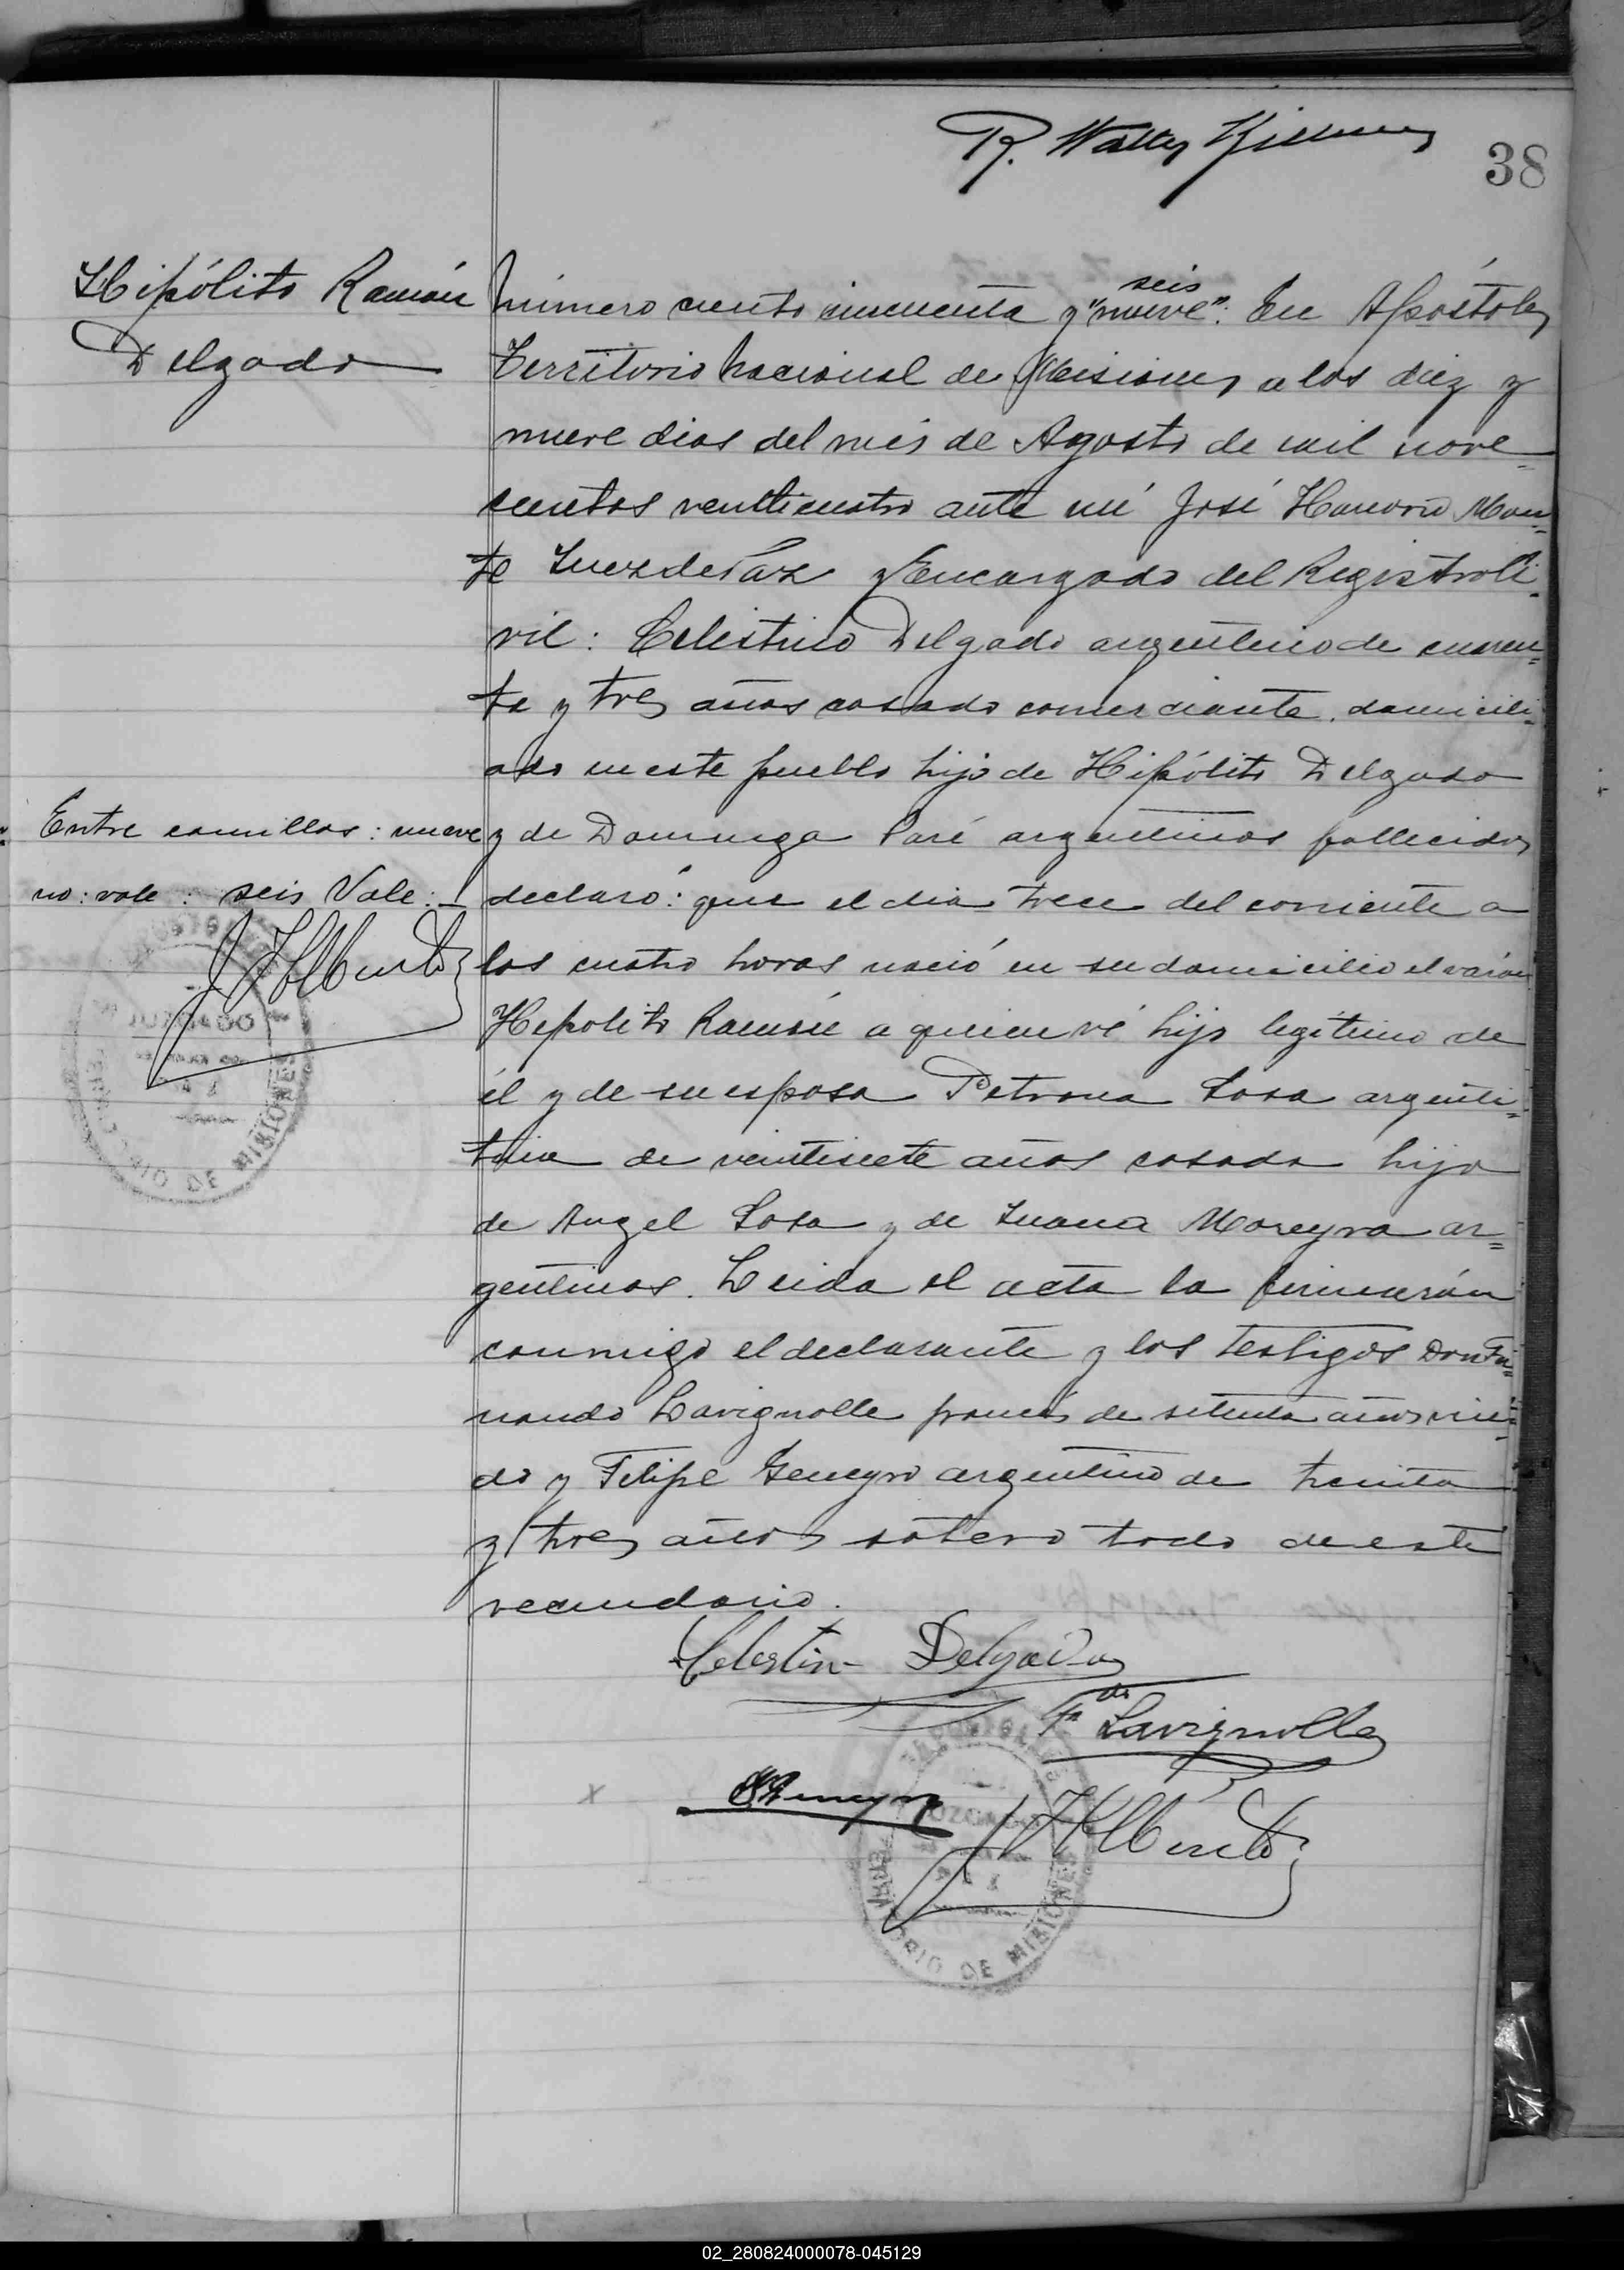 R. Walter
38
Hipólito Ramón
Delgado
seis
Número ciento cincuenta y "nueve". En Apóstoles
Territorio Nacional de Misiones a los diez y
nueve dias del més de Agosto de mil nove=
cientos venticuatro ante mí José Honorio Mon=
te Juez de Paz y Encargado del Registro Ci=
vil: Celestino Delgado argentino de cuaren=
ta y tres años casado comerciante, domicili=
ado en este pueblo hijo de Hipólito Delgado
y de Dominga Paré argentinos fallecidos
declaró: que el dia trece del corriente a
las cuatro horas nació en su domicilio el varón
Hipolito Ramón a quien ví hijo legítimo de
él y de su esposa Petrona Sosa argenti=
tina de veintisiete años casada hija
de Angel Sosa y de Juana Moreyra ar=
gentinos. Leida el acta la firmarán
conmigo el declarante y los testigos Don Fer=
nando Lavignolle francés de setenta años viu=
do y Felipe Geneyro argentino de treinta
y tres años sotero todo de este
vecindario.
Entre comillas: nueve
no: vale: seis Vale:
JUZGADO
TERRITORIO DE MISIONES
Celestino Delgado
Fdo Lavignolle
x
JUZGADO
TERRITORIO DE MISIONES
02_280824000078-045129